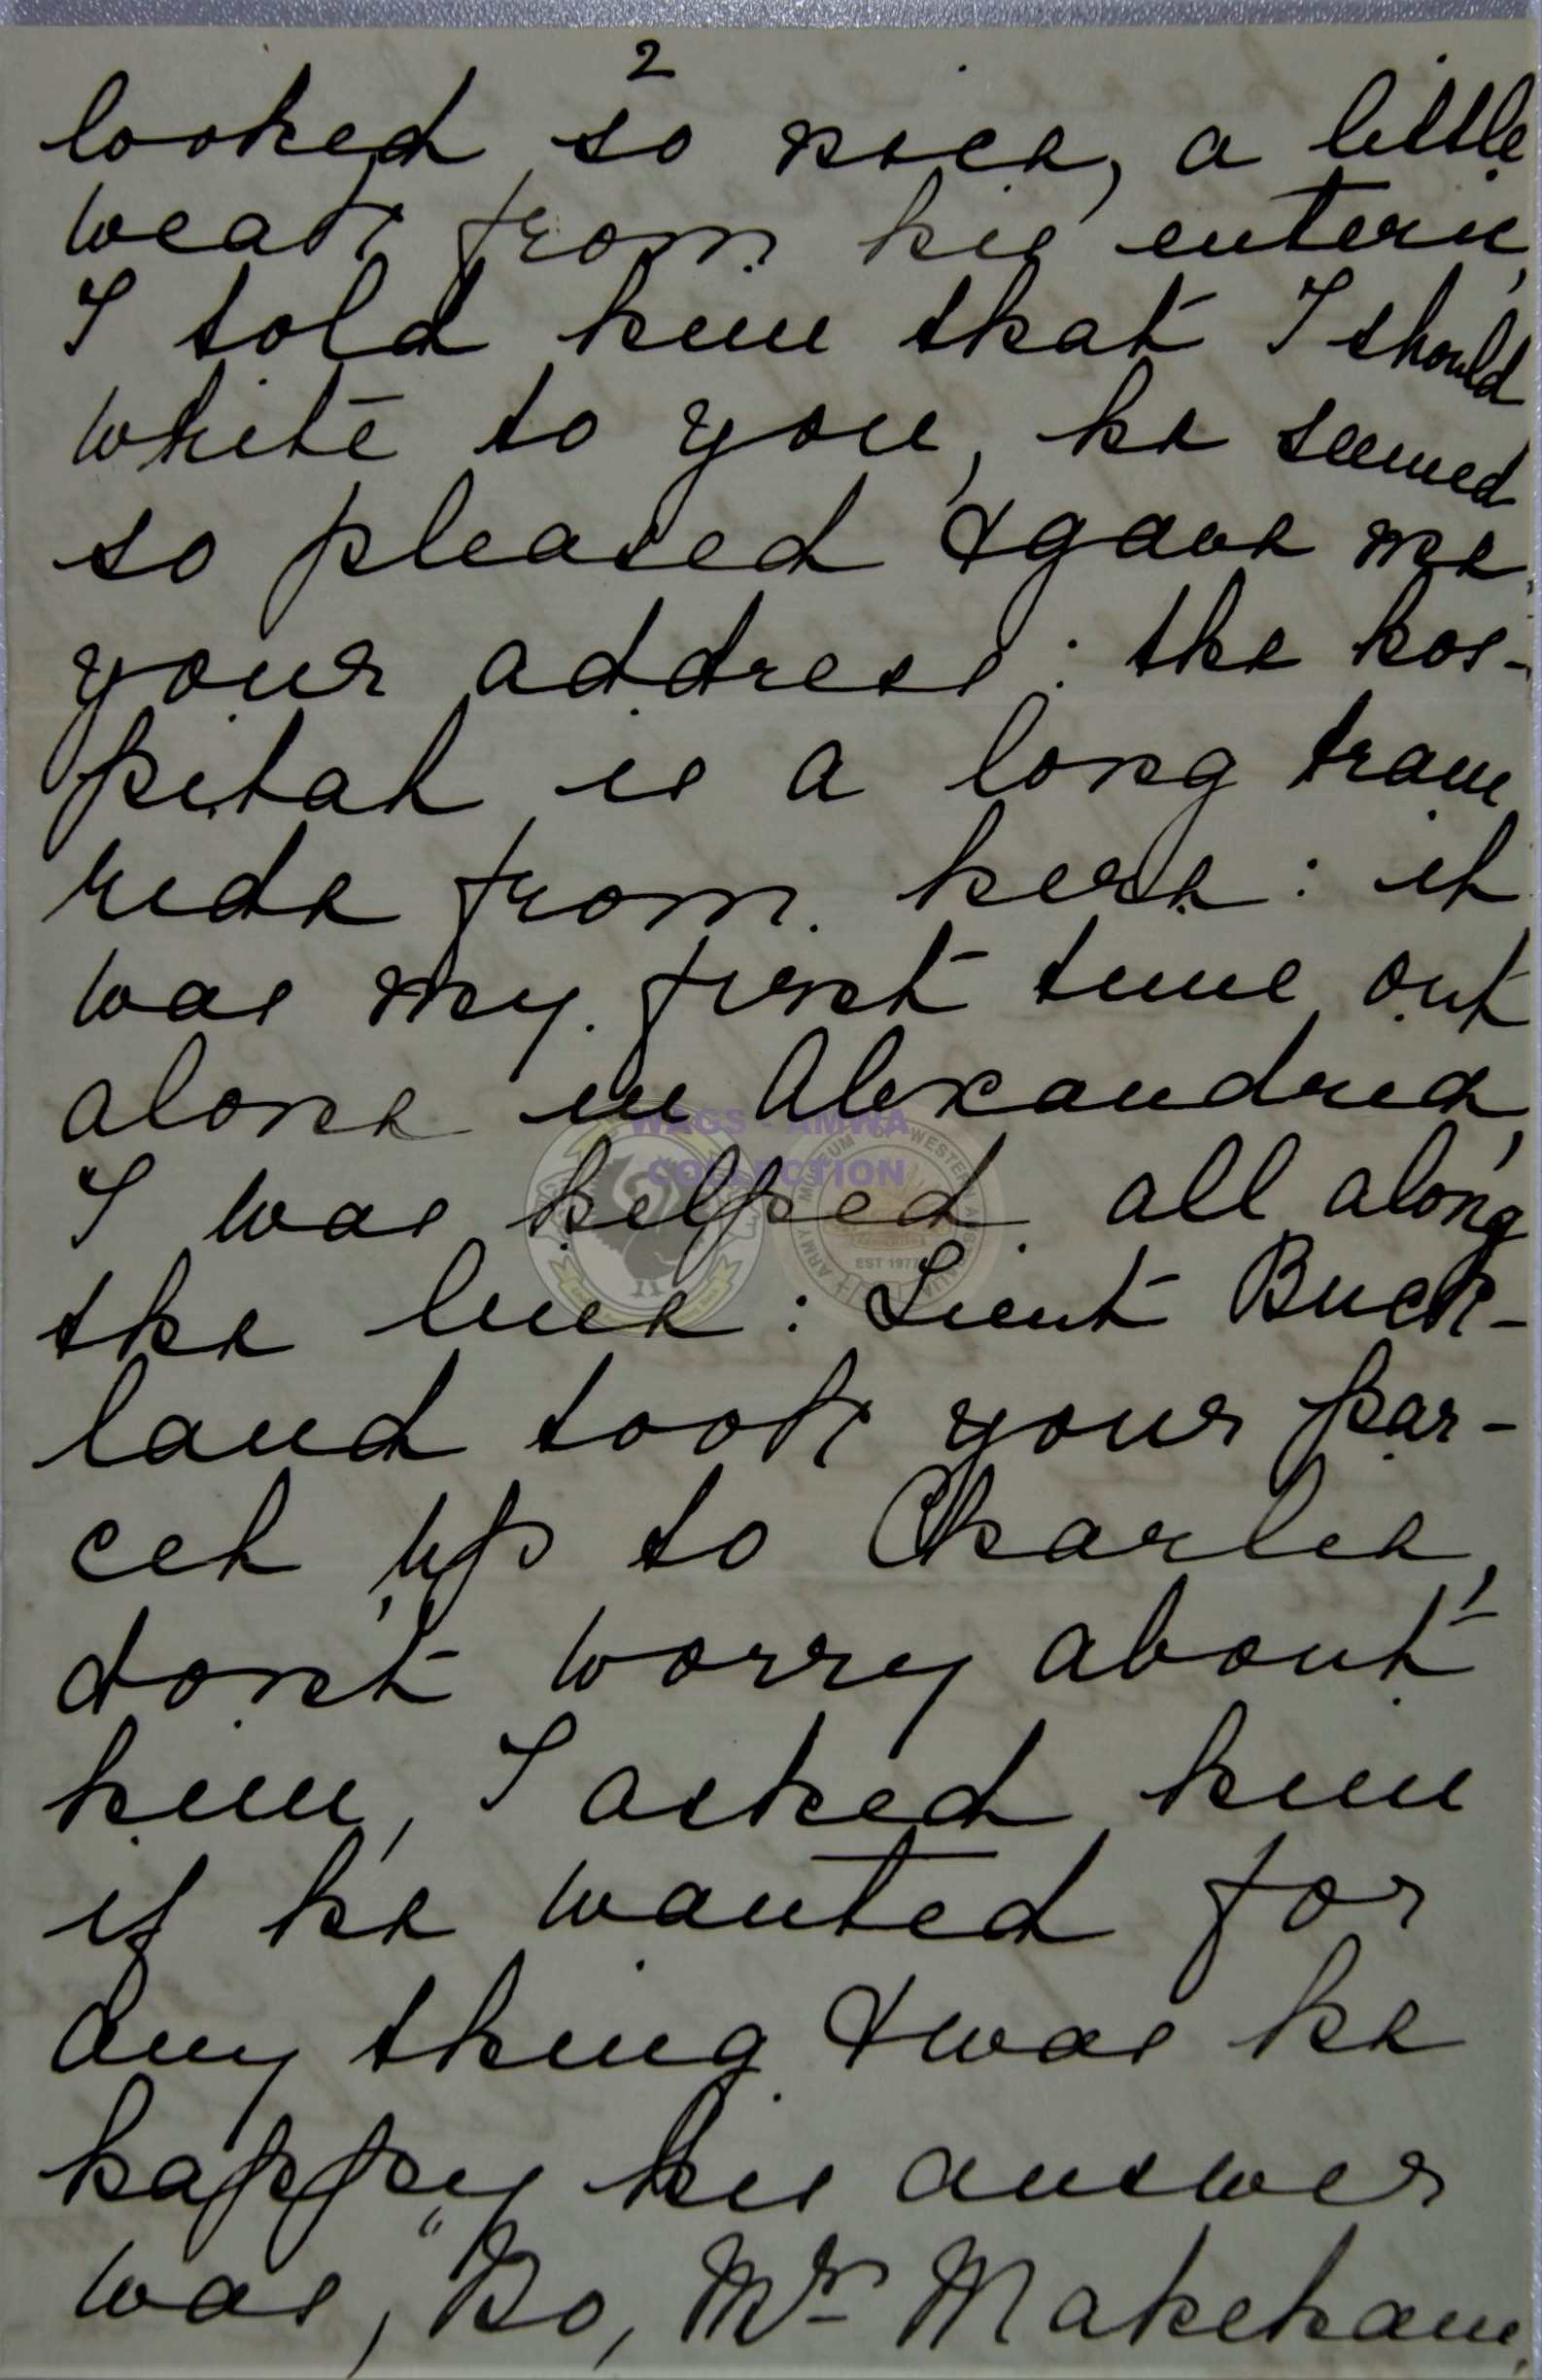 2
looked so nice, a little
weak from his enteric,
I told him that I should
write to you, he seemed
so pleased & gave me
your address: the hos-
pital is a long tram
ride from here: it
was my first time out
alone in Alexandria,
I was helped all along
the line: Lieut Buck-
land took your par-
cel up to Charlie,
don't worry about
him, I asked him
if he wanted for
any thing & was he
happy his answer
was, "No, Mrs Makeham,
WAGS - AMWA
COLLECTION
ARMY MUSEUM OF WESTERN AUSTRALIA
EST 1977